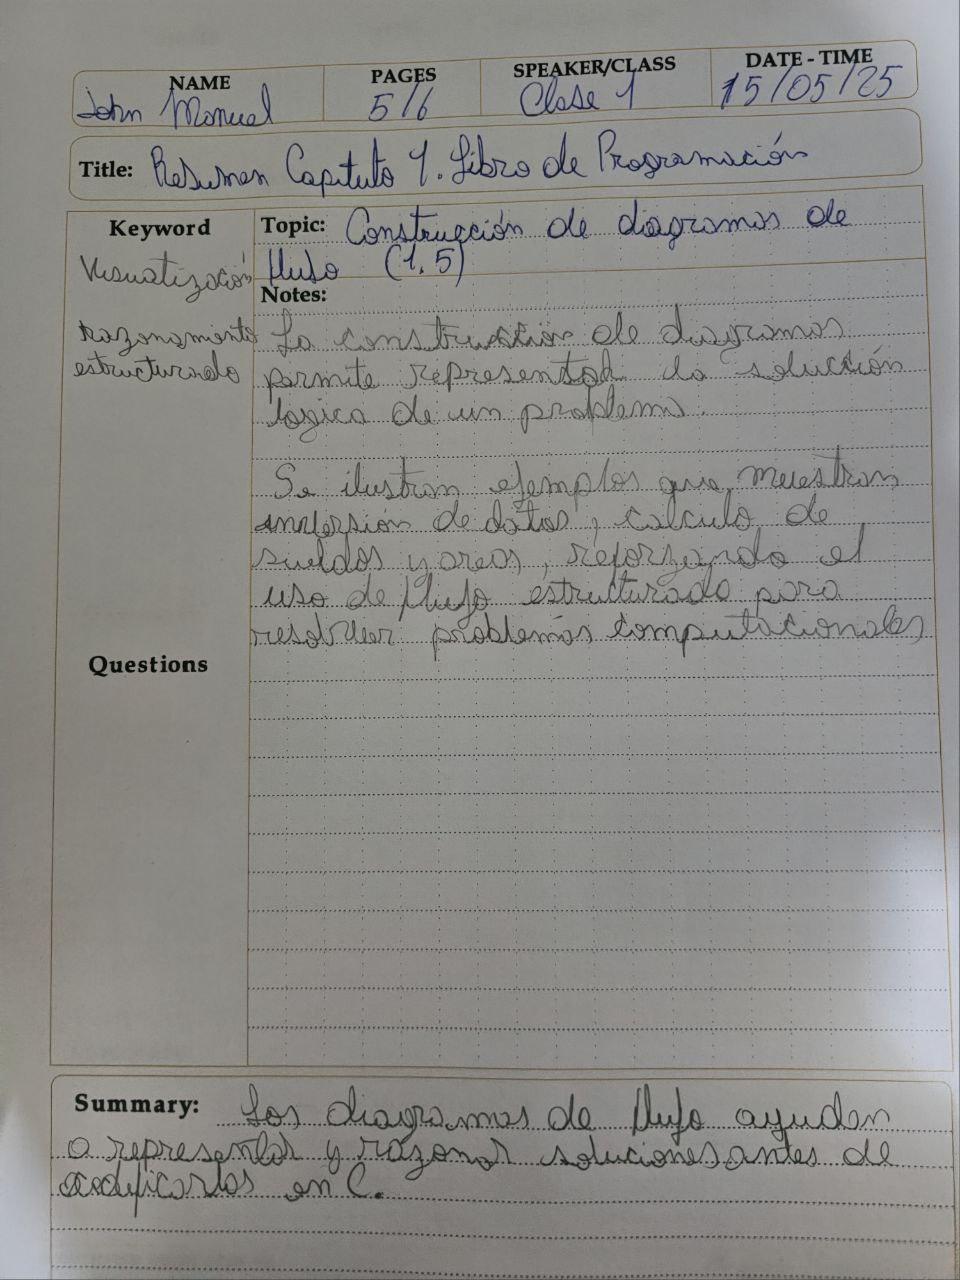 NAME
PAGES
SPEAKER/CLASS
DATE - TIME
John Manuel
5/6
Clase 1
15/05/25
Title: Resumen Capitulo 1. Libro de Programación
Keyword
Visualización
razonamiento
estructurado
Questions
Topic: Construcción de diagramas de
flujo (1,5)
Notes:
La construcción de diagramas
permite representar la solución
logica de un problema.
Se ilustran ejemplos que muestran
inversión de datos, calculo de
sueldos y areas, reforzando el
uso de flujo estructurado para
resolver problemas computacionales
Summary: Los diagramas de flujo ayudan
a representar y razonar soluciones antes de
codificarlos en C.